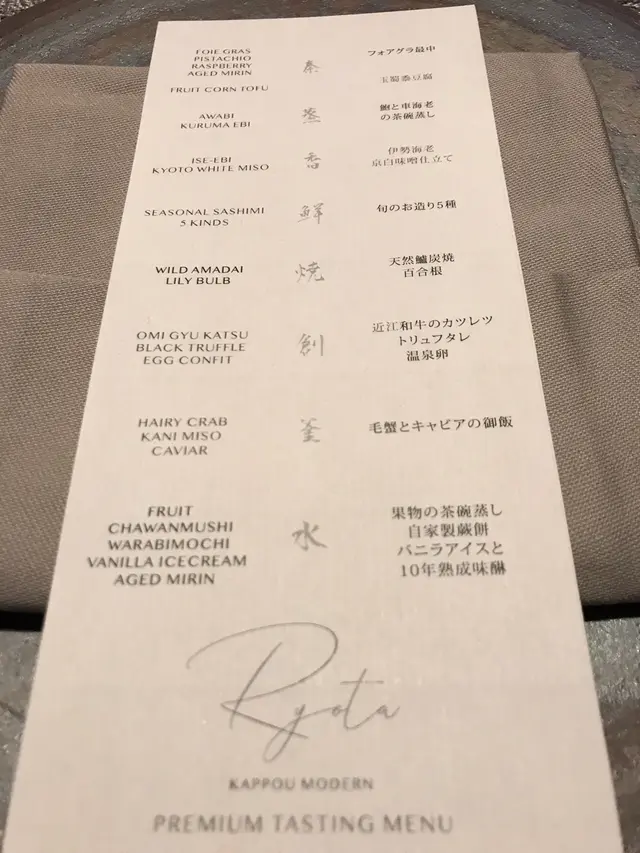 FOIE GRAS
PISTACHIO
RASPBERRY
AGED MIRIN
奏
フォアグラ最中
FRUIT CORN TOFU
玉蜀黍豆腐
AWABI
KURUMA EBI
蒸
鮑と車海老
の茶碗蒸し
ISE-EBI
KYOTO WHITE MISO
香
伊勢海老
京白味噌仕立て
SEASONAL SASHIMI
5 KINDS
鮮
旬のお造り5種
WILD AMADAI
LILY BULB
焼
天然鱸炭焼
百合根
OMI GYU KATSU
BLACK TRUFFLE
EGG CONFIT
創
近江和牛のカツレツ
トリュフタレ
温泉卵
HAIRY CRAB
KANI MISO
CAVIAR
釜
毛蟹とキャビアの御飯
FRUIT
CHAWANMUSHI
WARABIMOCHI
VANILLA ICECREAM
AGED MIRIN
水
果物の茶碗蒸し
自家製蕨餅
バニラアイスと
10年熟成味醂
Ryota
KAPPOU MODERN
PREMIUM TASTING MENU